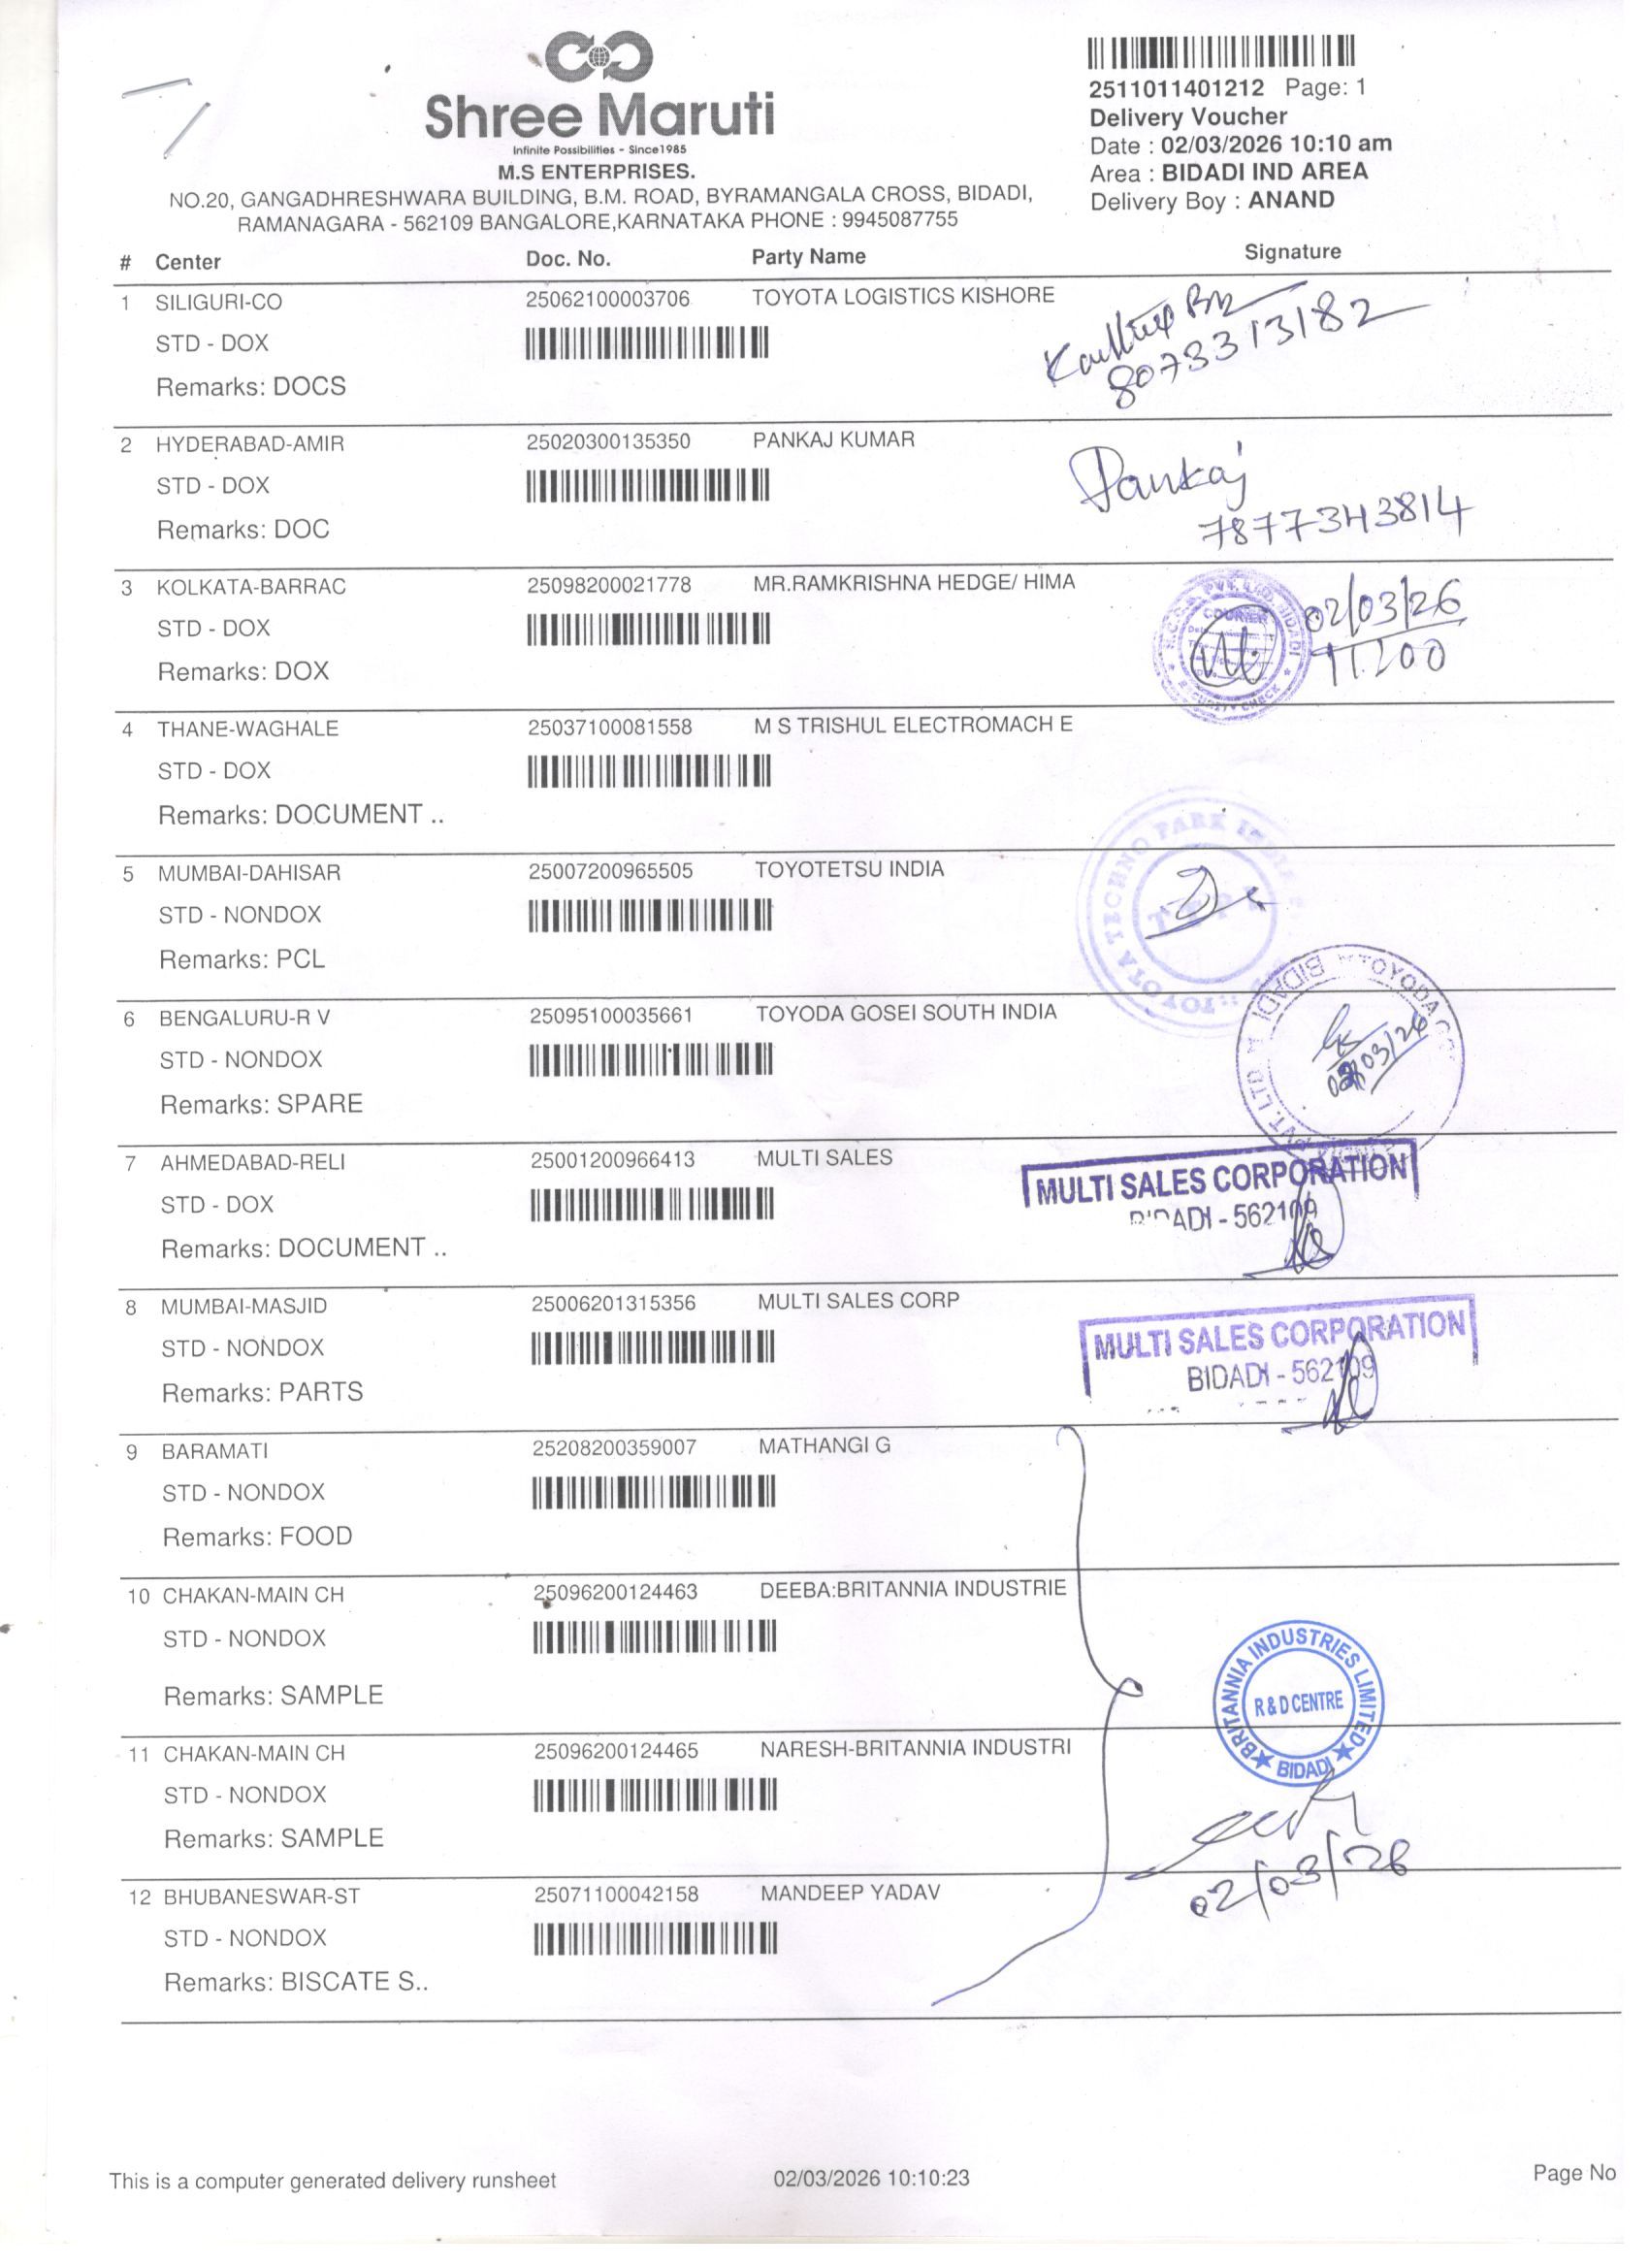 Shree Maruti
Infinite Possibilities - Since1985
M.S ENTERPRISES.
NO.20, GANGADHRESHWARA BUILDING, B.M. ROAD, BYRAMANGALA CROSS, BIDADI,
RAMANAGARA - 562109 BANGALORE,KARNATAKA PHONE : 9945087755
2511011401212 Page: 1
Delivery Voucher
Date : 02/03/2026 10:10 am
Area : BIDADI IND AREA
Delivery Boy : ANAND
# Center Doc. No. Party Name Signature
1 SILIGURI-CO 25062100003706 TOYOTA LOGISTICS KISHORE
STD - DOX
8073313182
Remarks: DOCS
2 HYDERABAD-AMIR 25020300135350 PANKAJ KUMAR
STD - DOX Pankaj
Remarks: DOC 7877343814
3 KOLKATA-BARRAC 25098200021778 MR.RAMKRISHNA HEDGE/ HIMA
COURIER 02/03/26
STD - DOX
Remarks: DOX
SECURITY CHECK
4 THANE-WAGHALE 25037100081558 M S TRISHUL ELECTROMACH E
STD - DOX
Remarks: DOCUMENT ..
TOYOTA TECHNO PARK
5 MUMBAI-DAHISAR 25007200965505 TOYOTETSU INDIA
STD - NONDOX
Remarks: PCL
6 BENGALURU-R V 25095100035661 TOYODA GOSEI SOUTH INDIA
TOYODA
PVT. LTD BIDADI
STD - NONDOX
02/03/26
Remarks: SPARE
7 AHMEDABAD-RELI 25001200966413 MULTI SALES
MULTI SALES CORPORATION
STD - DOX BIDADI - 562109
Remarks: DOCUMENT ..
8 MUMBAI-MASJID 25006201315356 MULTI SALES CORP
MULTI SALES CORPORATION
STD - NONDOX
BIDADI - 562109
Remarks: PARTS
9 BARAMATI 25208200359007 MATHANGI G
STD - NONDOX
Remarks: FOOD
10 CHAKAN-MAIN CH 25096200124463 DEEBA:BRITANNIA INDUSTRIE
STD - NONDOX
Remarks: SAMPLE
BRITANNIA INDUSTRIES LIMITED
R & D CENTRE
BIDADI
11 CHAKAN-MAIN CH 25096200124465 NARESH-BRITANNIA INDUSTRI
STD - NONDOX
Remarks: SAMPLE
02/03/26
12 BHUBANESWAR-ST 25071100042158 MANDEEP YADAV
STD - NONDOX
Remarks: BISCATE S..
This is a computer generated delivery runsheet 02/03/2026 10:10:23 Page No